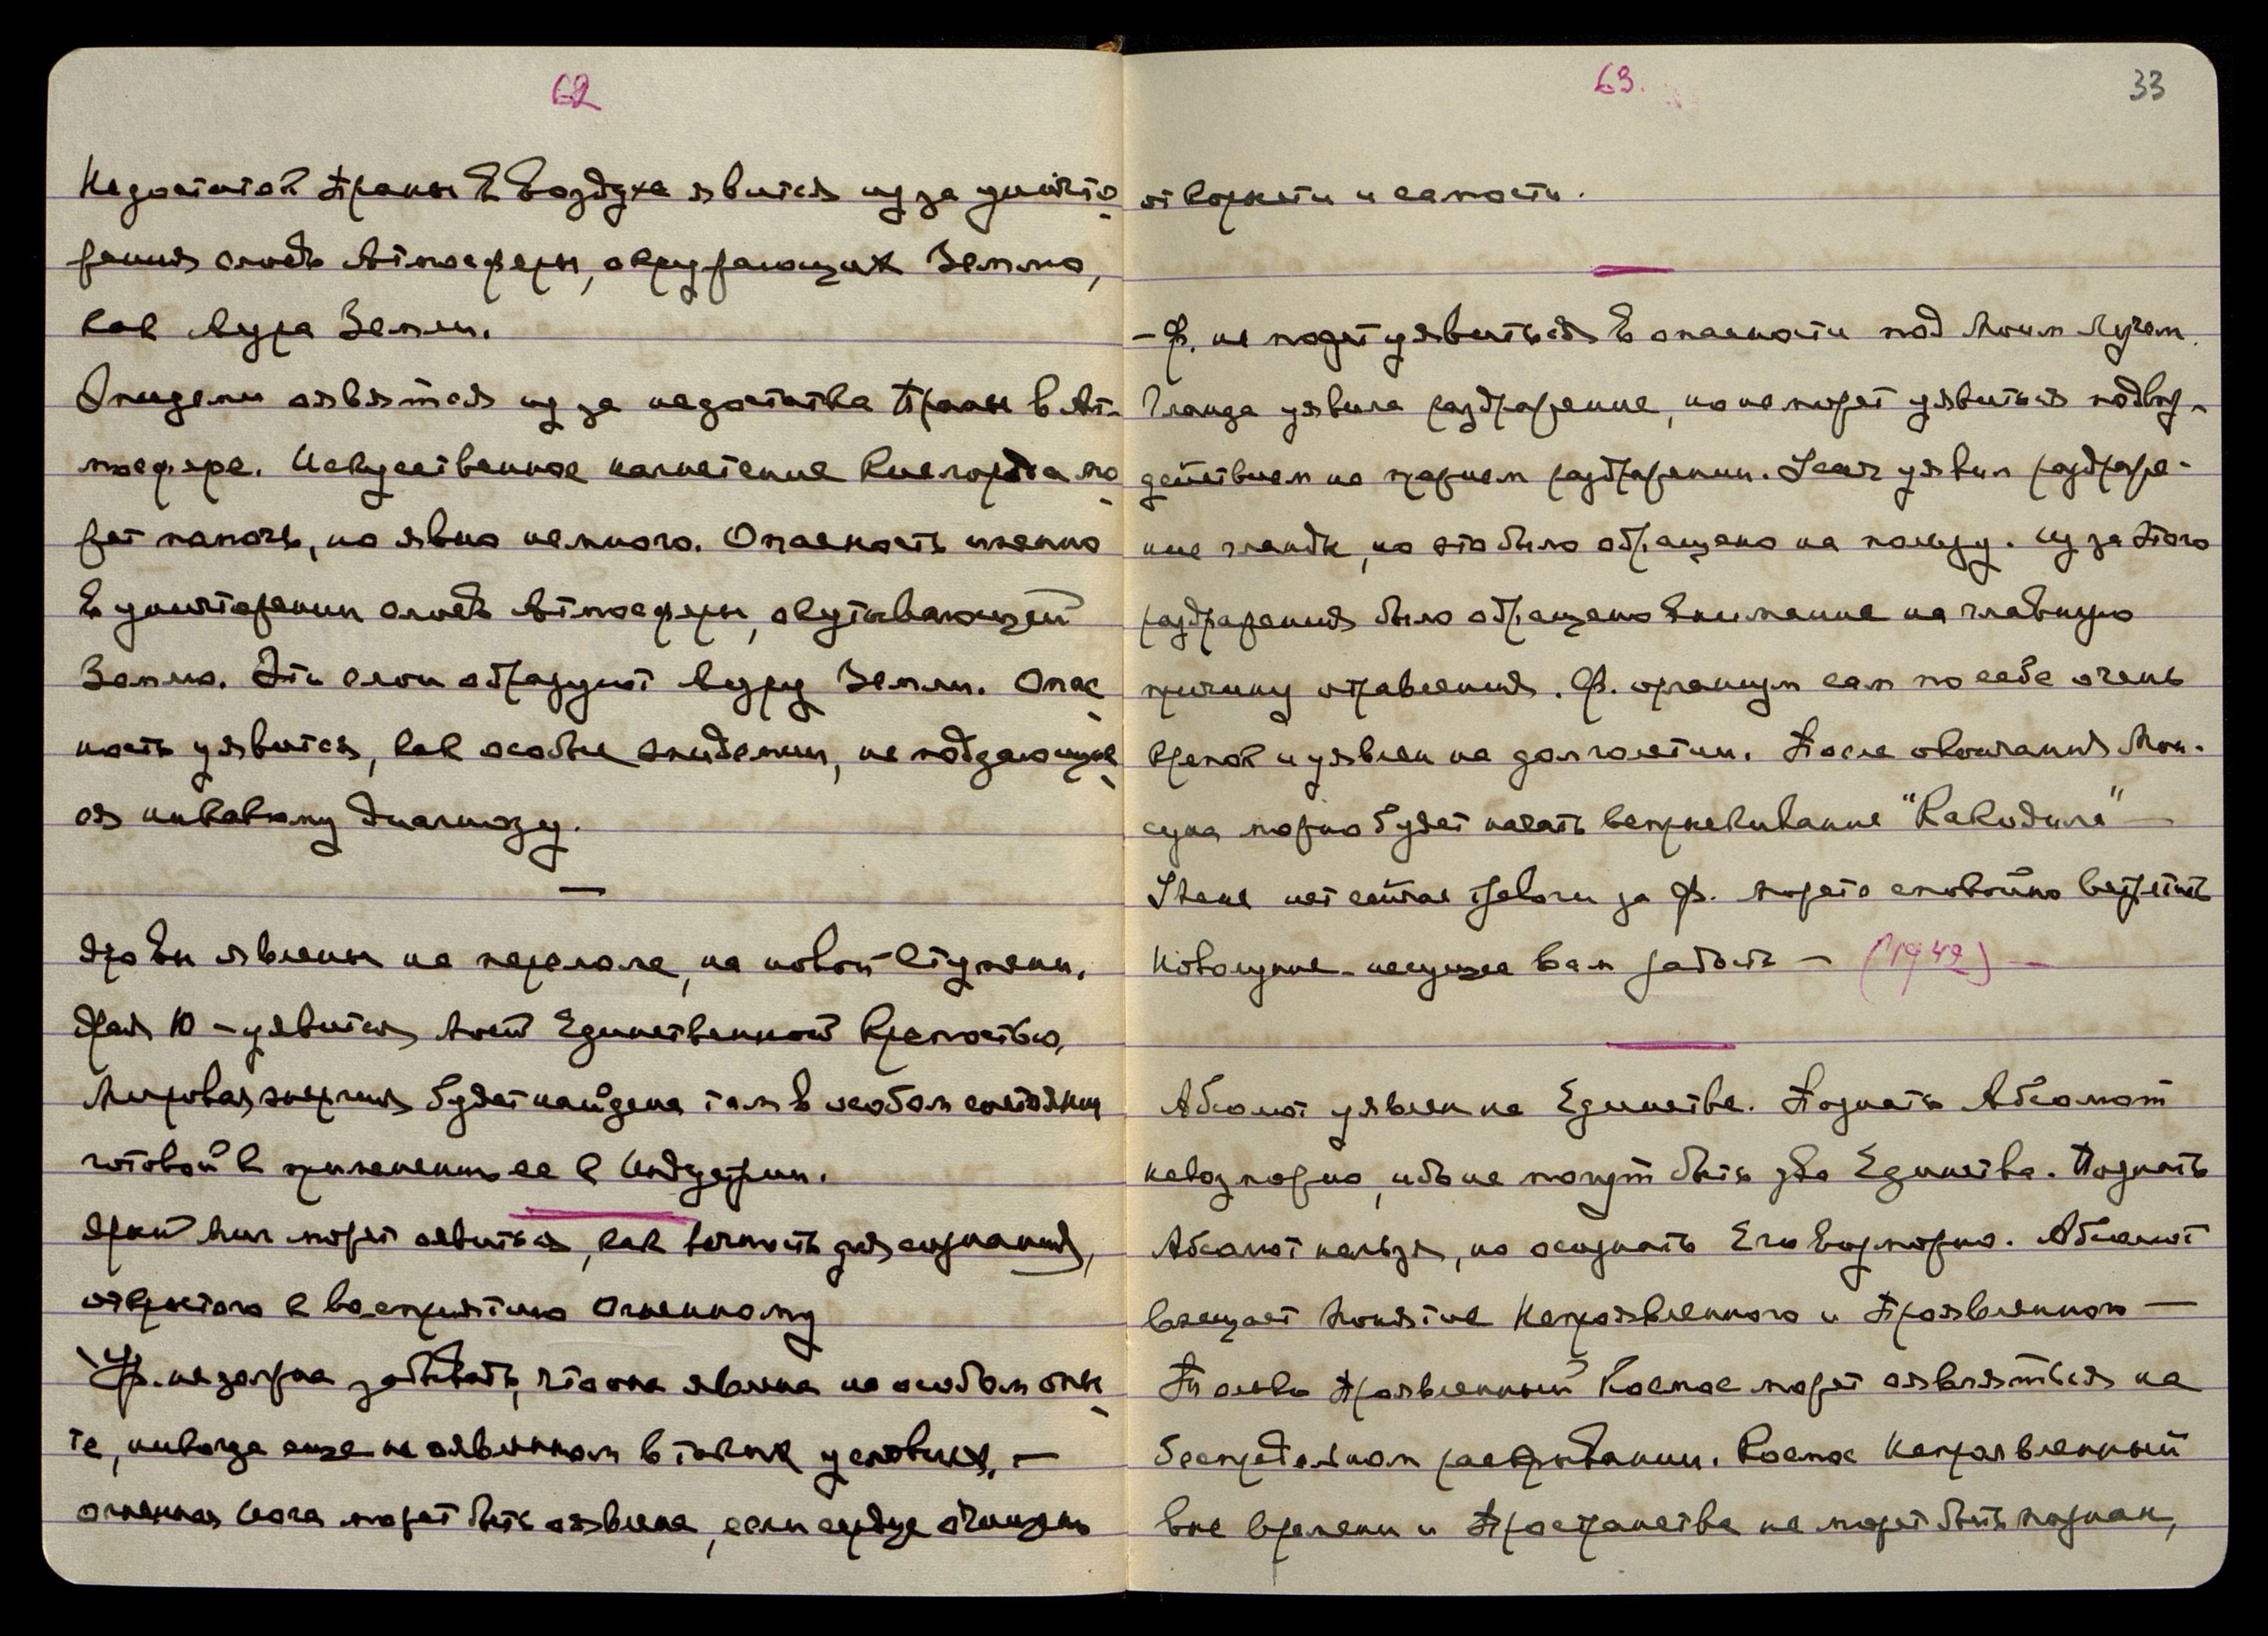 62
Недостаток Праны в воздухе явится из за уничто
жения слоев Атмосферы, окружающих Землю,
как аура Земли.
Эпидемии оявятся из за недостатка Праны в Ат-
мосфере. Искусственное нагнетение Кислорода мо
жет помочь, но явно немного. Опасность именно
в уничтожении слоев Атмосферы, окутывающей
Землю. Эти слои образуют ауру Земли. Опас
ность уявится, как особые эпидемии, не поддающие
ся никакому диагнозу.
—
явлены на переломе, на новой Ступени.
Ю – уявится Моей Единственной Крепостью,
Мировая энергия будет найдена там в особом состоянии
готовой к применению ее в Индустрии.
Яркий Миг может оявиться, как вечность для сознания,
открытого к восприятию Огненному
Ф. не должна забывать, что она явлена на особом опы
те, никогда еще не оявленном в таких условиях, —
огненная Йога может быть оявлена, если сердце очищено
63. 33
от корысти и самости.
– Ф. не может уявиться в опасности под Моим Лучом.
Гланда уявила раздражение, но не может уявиться под воз-
действием на прежнем раздражении. уявил раздраже-
ние гланды, но это было обращено на пользу. Из за этого
раздражения было обращено внимание на главную
причину отравления. Ф. организм сам по себе очень
крепок и уявлен на долголетии. После окончания Мон-
суна можно будет начать вспрыскивание "Какодила" —
нет сейчас тревоги за Ф. Можете спокойно встретить
Новолуние несущее вам — (1949) —
Абсолют уявлен на Единстве. Познать Абсолют
невозможно, ибо не могут быть два Единства. Познать
Абсолют нельзя, но осознать Его возможно. Абсолют
вмещает Понятие Непроявленного и Проявленного —
Только Проявленный Космос может оявляться на
беспредельном раскрывании. Космос Непроявленный
вне времени и Пространства не может быть познан,